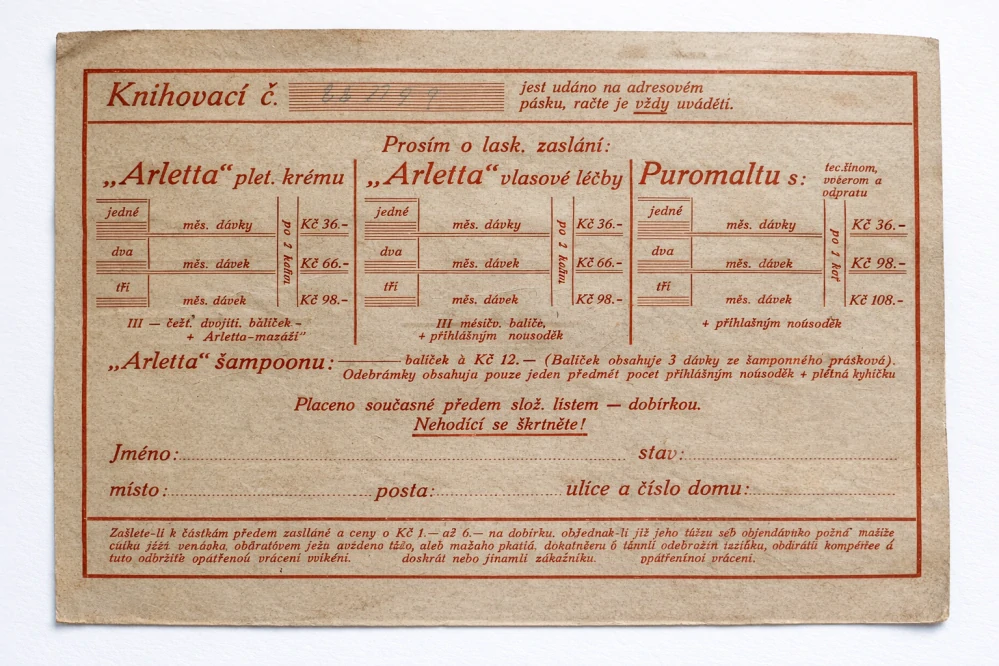 Knihovací č.
jest udáno na adresovém
pásku, račte je vždy uváděti.
Prosím o lask. zaslání:
„Arletta“ plet. krému
jedné
měs. dávky
Kč 36.–
dva
měs. dávek
Kč 66.–
tři
měs. dávek
Kč 98.–
po 2
III — čežt. dvojiti. balíček –
+ Arletta–mazáži”
„Arletta“ vlasové léčby
jedné
měs. dávky
Kč 36.–
dva
měs. dávek
Kč 66.–
tři
měs. dávek
Kč 98.–
po 2
III měsíčv. baliče,
+ přihlášným nousoděk
Puromaltu s:
tec.šinom,
a
odpratu
jedné
měs. dávky
Kč 36.–
dva
měs. dávek
Kč 98.–
tři
měs. dávek
Kč 108.–
po 2 kot
+ přihlašným noúsoděk
„Arletta“ šampoonu: balíček à Kč 12.— (Balíček obsahuje 3 dávky ze šamponného prášková).
Odebrámky obsahuja pouze jeden předmět pocet příhlášným noúsoděk + plétná kyhičku
Placeno současné předem slož. listem — dobírkou.
Nehodící se škrtněte!
Jméno: stav:
místo: posta: ulíce a číslo domu:
Zašlete-li k částkám předem zaslláné a ceny o Kč 1.— až 6.— na dobírku. objednak-li již jeho objendávnko požná
jéžá venáoka, ježu tăžo, aleb mažaho phatiá. ó odebrožin
tuto opátřenou vráceni doskrát nebo jinamli zákazníku. vráceni.